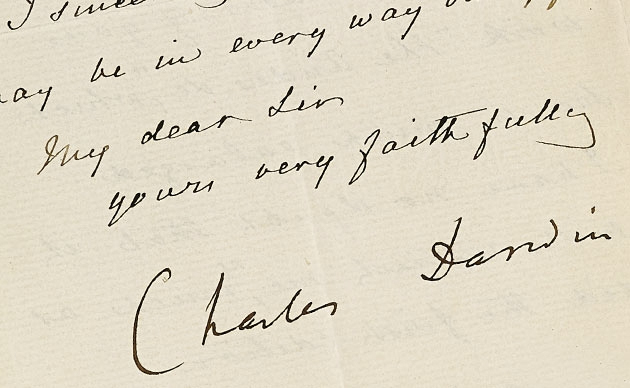 I since
may be in every way
My dear Sir
yours very faithfully
Charles Darwin